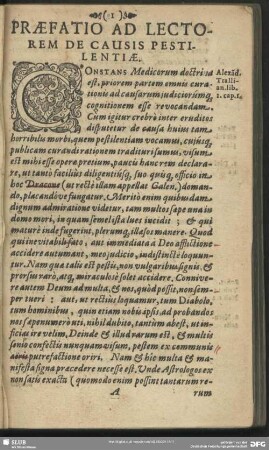 (1)
PRÆFATIO AD LECTO-
REM DE CAUSIS PESTI-
LENTIÆ.
CONSTANS Medicorum doctrina
est, priorem partem omnis cura-
tionis ad causarum judiciorumq;
cognitionem esse revocandam.
Cum igitur crebrò inter eruditos
disputetur de causa hujus tam
horribilis morbi, quem pestilentiam vocamus, cujusq;
publicam curandi rationem traditurisumus, visum
est mihi esse operæ pretium, pauci hanc rem declara-
re, ut tanto faciliùs diligentiùsq;, suo quisq; officio in
hoc Dracone (ut rectè illam appellat Galen.) doman-
do, placandóve fungatur. Meritò enim quibusdam
dignum admiratione videtur, tam multos sæpe una in
domo mori, in quam semel ista lues incidit: & qui
maturè inde fugerint, plerumq; illasos manere. Quod
qui inevitabili fato, aut immediata à Deo afflictione
accidere autumant, meo judicio, indistinctè loquun-
tur. Nam qua talis est pestis, non vulgaribus signis, &
prorsus raro, atq; miraculose solet accidere. Connive-
re autem Deum ad multa, & nos, quòd possit, non sem-
per tueri: aut, ut rectius loquamur, tum Diabolo,
tum hominibus, quin etiam nobis ipsis, ad probandos
nos sæpenumerò uti, nihil dubito, tantùm abest, ut in-
ficias ire velim, Deinde & illud rarum est, & multis
senio confectis nunquam visum, pestem ex communis
aëris putrefactione oriri. Nam & hic multa & ma-
nifesta signa præcedere necesse est. Unde Astrologos ex
non satis exactu (quomodo enim possint tantarum re-
A
rum
Alexād.
Tralli-
an. lib.
1. cap. 1.
SLUB
DFG